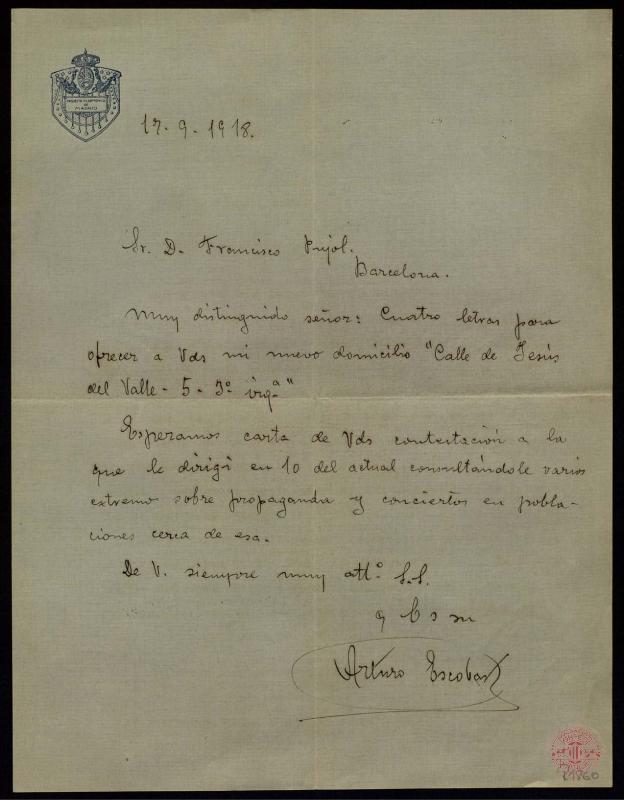 17-9-1918.
Sr. D. Francisco Pujol.
Barcelona.
Muy distinguido señor: Cuatro letras para
ofrecer a Vds mi nuevo domicilio "Calle de Jesús
del Valle - 5 - 3º izqª"
Esperamos carta de Vds contestación a la
que le dirigí en 10 del actual consultándole varios
extremo sobre propaganda y conciertos en pobla-
ciones cerca de esa.
De V. siempre muy attº S.S.
q b s m
Arturo Escobar